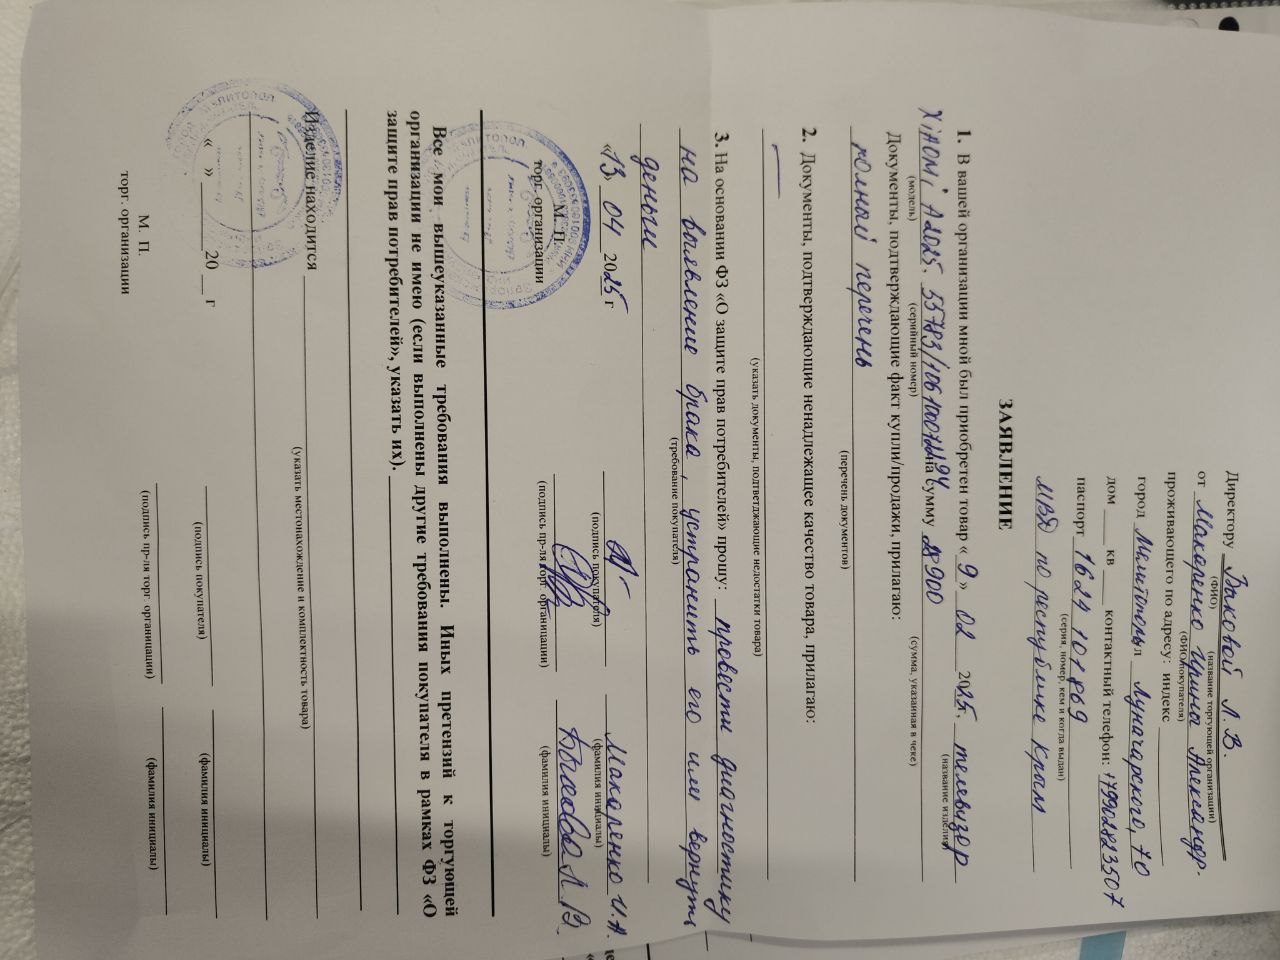 Директору Быковой Л.В.
(ФИО) (название торгующей организации)
от Макаренко Ирина Александр.
(ФИО покупателя)
проживающего по адресу: индекс
город Мелитополь, Луначарского, 70
дом кв контактный телефон: +79902823507
паспорт 1624 101869
(серия, номер, кем и когда выдан)
МВД по республике Крым
ЗАЯВЛЕНИЕ
1. В вашей организации мной был приобретен товар « 9 » 02 2025г. телевизор
(название изделия)
XiAOMi A2025. 55783/106100072494 на сумму 28900
(модель) (серийный номер) (сумма, указанная в чеке)
Документы, подтверждающие факт купли/продажи, прилагаю:
полный перечень
(перечень документов)
2. Документы, подтверждающие ненадлежащее качество товара, прилагаю:
—
(указать документы, подтветджающие недостатки товара)
3. На основании ФЗ «О защите прав потребителей» прошу: провести диагностику
на выявление брака, устранить его или вернуть
(требование покупателя)
деньги
«13» 04 2025 г Макаренко И.А.
(подпись покупателя) (фамилия инициалы)
М. П.
торг. организации
(подпись пр-ля торг. органицации) (фамилия инициалы)
Все мои вышеуказанные требования выполнены. Иных претензий к торгующей
организации не имею (если выполнены другие требования покупателя в рамках ФЗ «О
защите прав потребителей», указать их).
Изделие находится
(указать местонахождение и комплектность товара)
« » 20 г
(подпись покупателя) (фамилия инициалы)
М. П.
торг. организации
(подпись пр-ля торг. органицации) (фамилия инициалы)